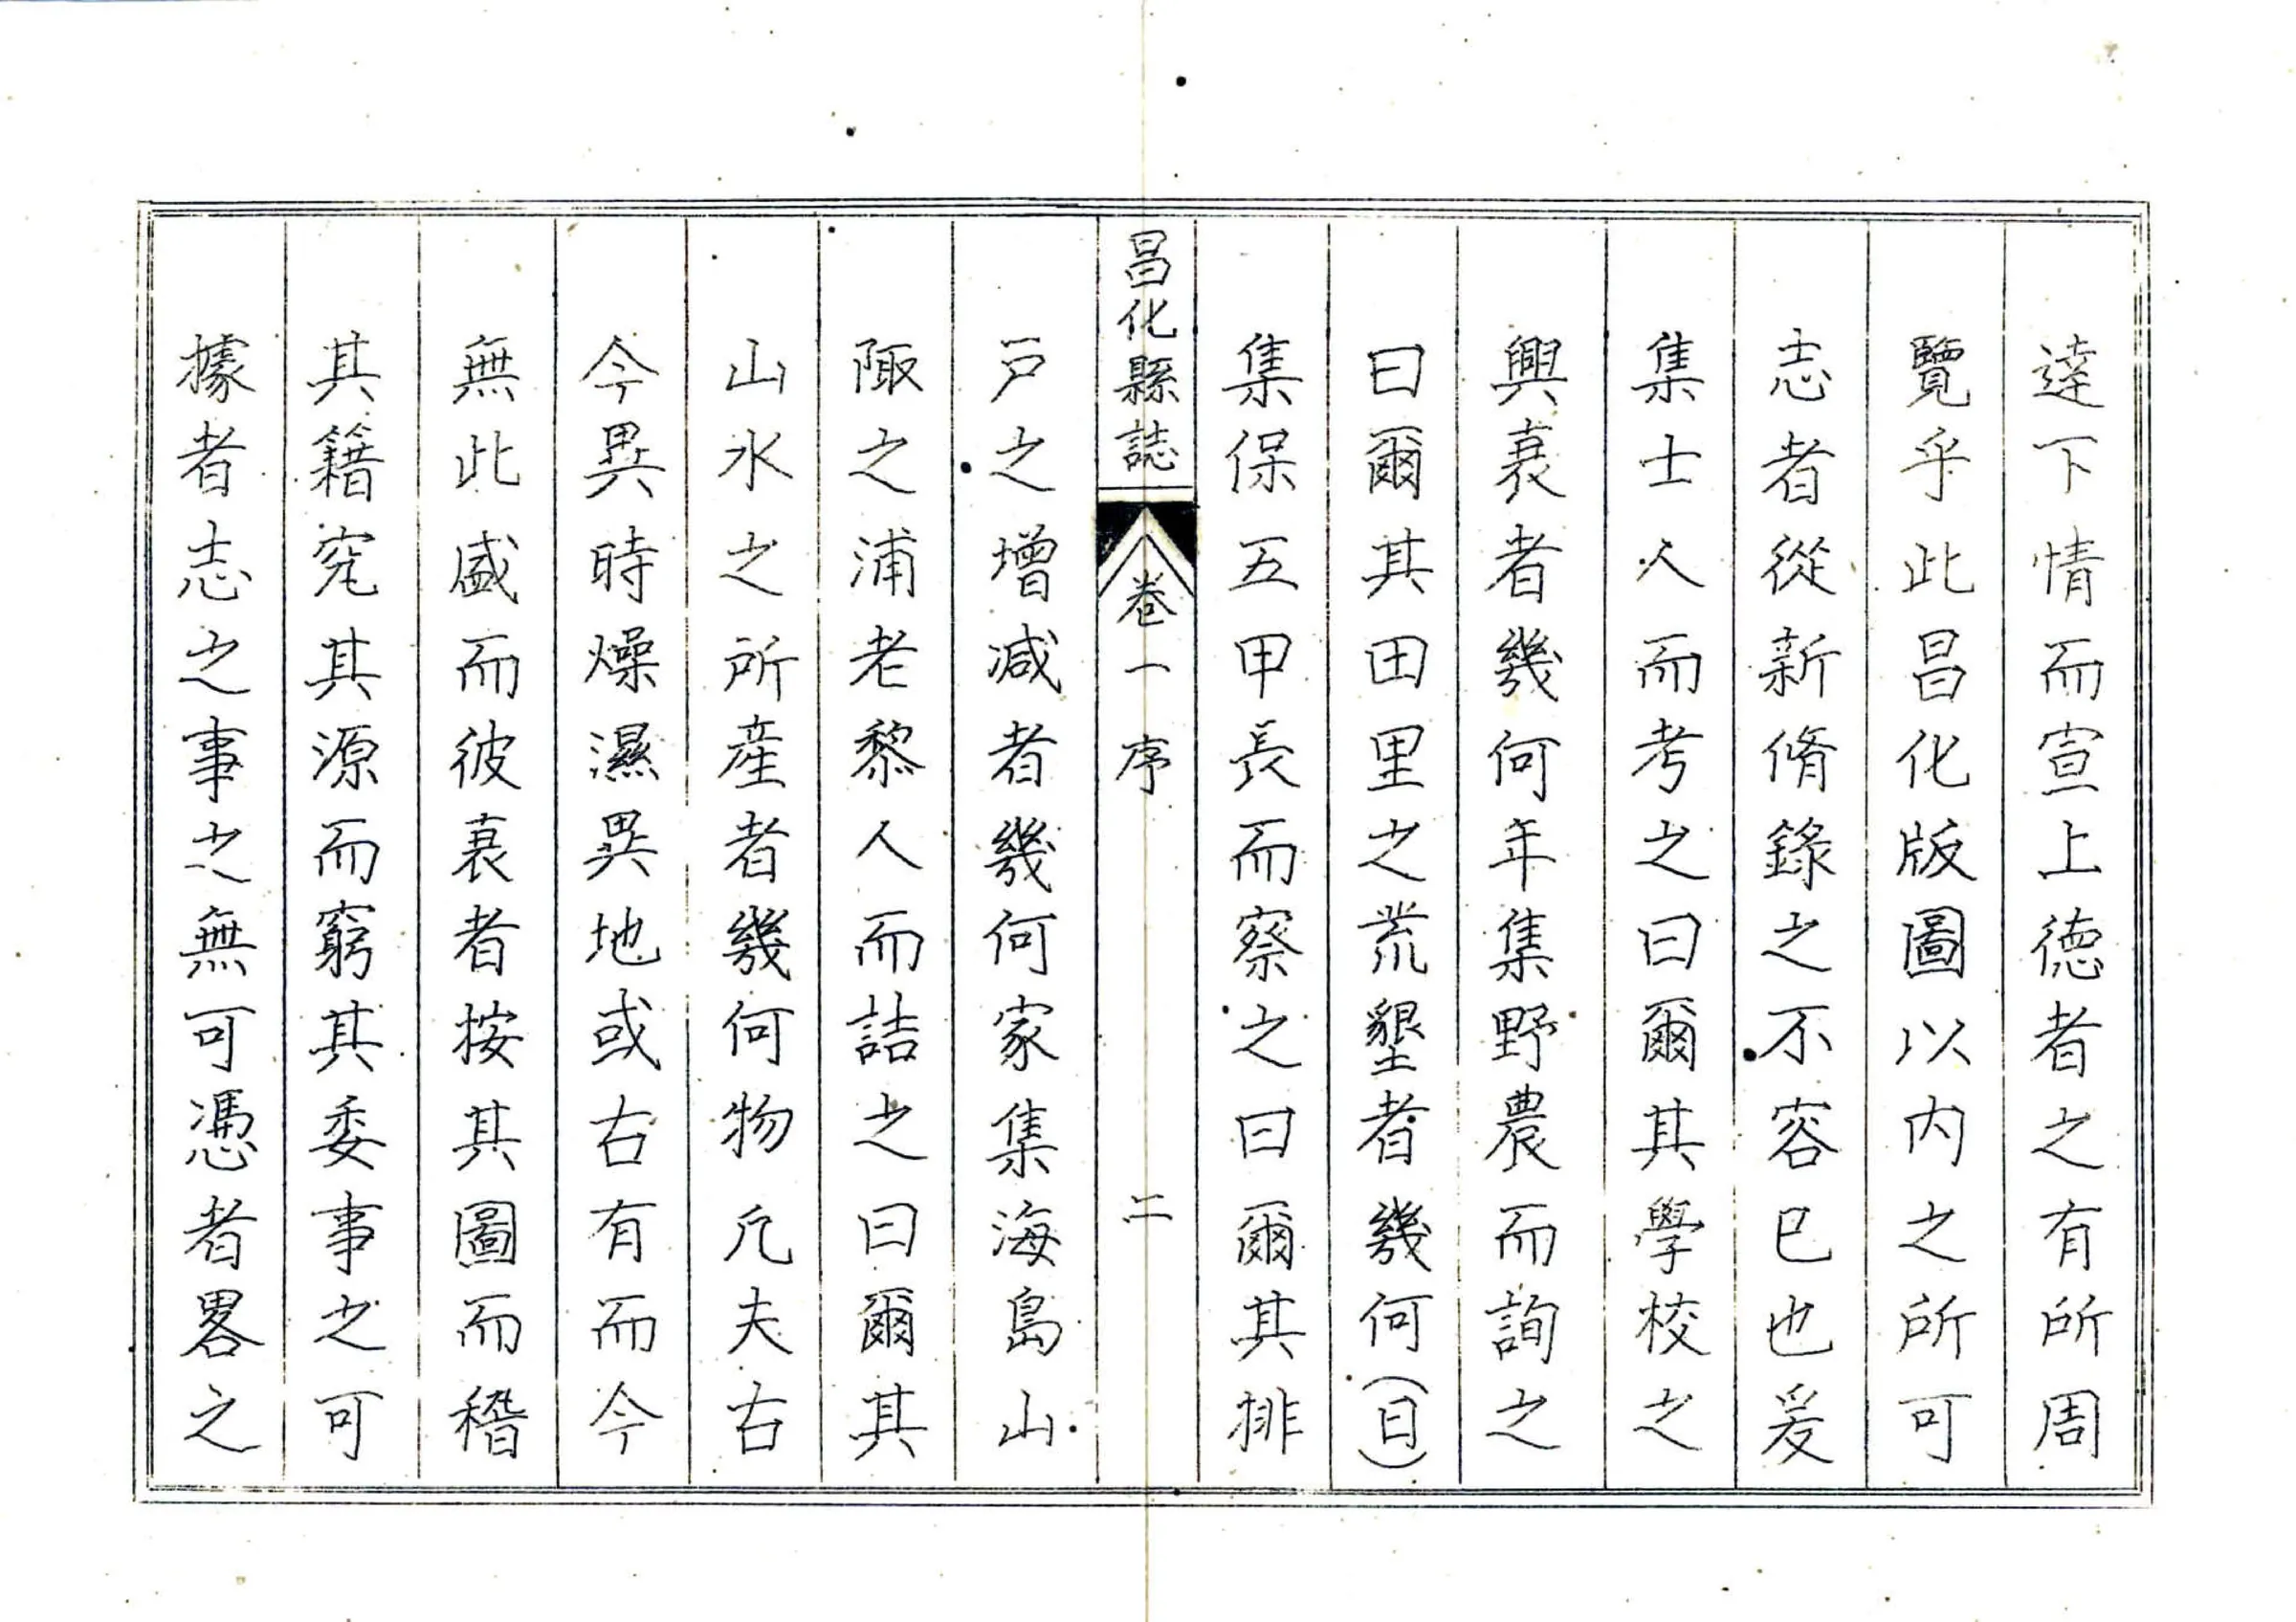 達下情而宣上德者之有所周
覽乎此昌化版圖以内之所可
志者從新脩錄之不容已也爰
集士人而考之曰爾其學校之
興衰者幾何年集野農而詢之
曰爾其田里之荒墾者幾何(日)
集保五甲長而察之曰爾其排
昌化縣誌 卷一序 二
戸之增减者幾何家集海島山
陬之浦老黎人而詰之曰爾其
山水之所産者幾何物凢夫右
今異時燥濕異地或右有而今
無此盛而彼衰者按其圖而稽
其籍究其源而窮其委事之可
據者志之事之無可憑者畧之